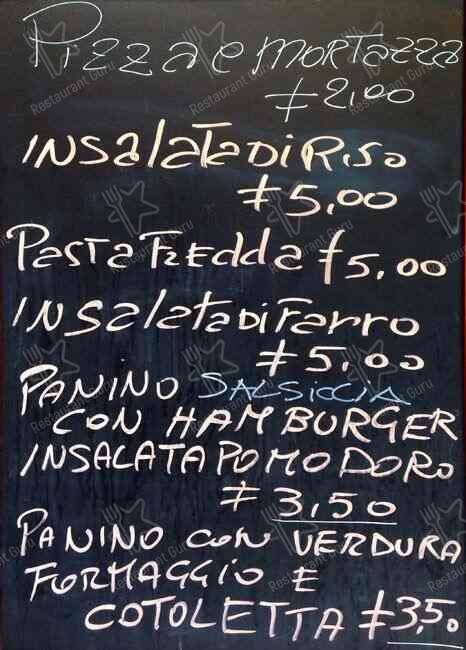 Pizza e MORTAZZA
€ 2,00
INSalaTa DI RISO
€ 5,00
PasTa FREdda €5,00
INSalaTa DI Farro
€ 5,00
PANINO SALSICCIA
CON HAMBURGER
INSALATA POMODORO
€ 3,50
PANINO CON VERDURA
FORMAGGIO E
COTOLETTA €3,50